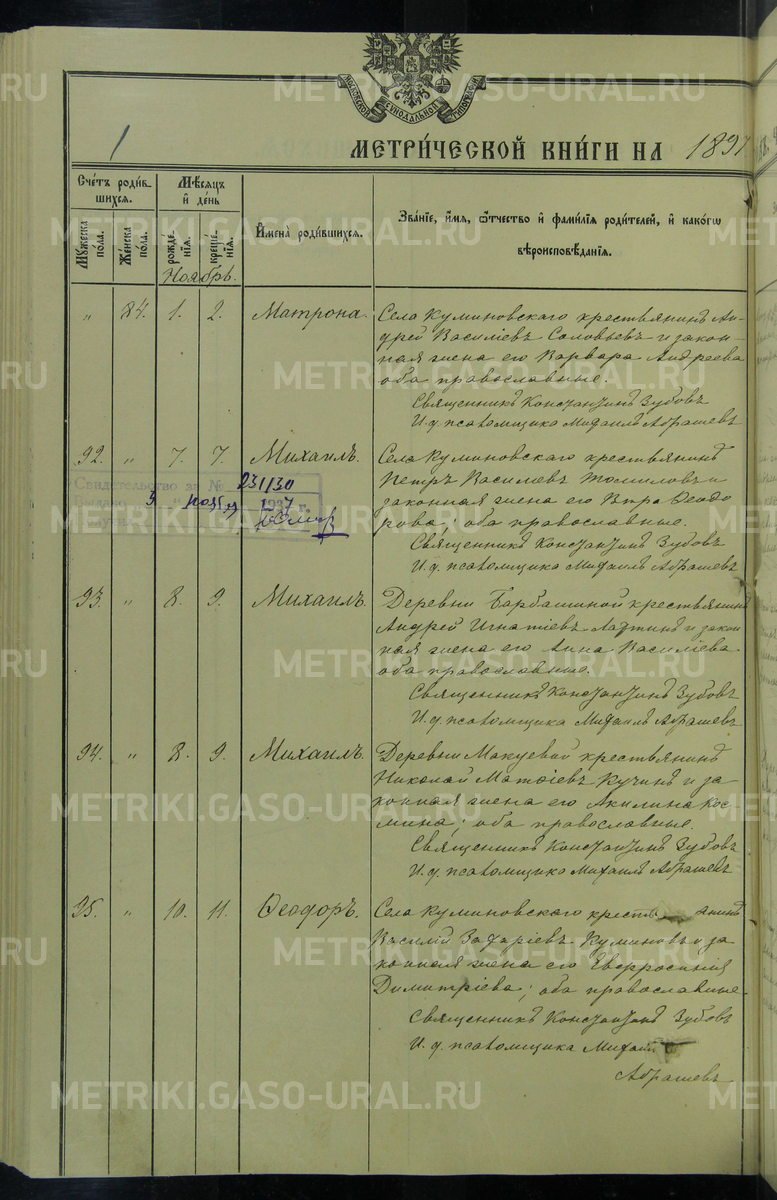 МОСКОВСКОЙ СѴНОДАЛЬНОЙ ТИПОГРАФІИ
1
МЕТРИ́ЧЕСКОЙ КНИ́ГИ НА 1897
Сче́тъ роди́вшихся.
Мꙋ́жеска по́ла.
Же́нска по́ла.
Мѣ́сяцъ и҆ де́нь
рожде́нїѧ.
креще́нїѧ.
И҆мена̀ роди́вшихся.
Зва́нїе, и҆́мѧ, ѻ҆́тчество и҆ фами́лїѧ роди́телей, и҆ како́гѡ
вѣроисповѣ́данїѧ.
Ноябрь.
" 84. 1. 2. Матрона.
Села Куминовскаго крестьянинъ Ан-
дрей Василіевъ Соловьевъ и закон-
ная жена его Варвара Андреева
оба православные.
Священникъ Константинъ Зубовъ
И. д. псаломщика Михаилъ Абрашевъ
92. " 7. 7. Михаилъ.
Села Куминовскаго крестьянинъ
Петръ Василіевъ Томиловъ и
законная жена его Вѣра Ѳеодо-
рова; оба православные.
Священникъ Константинъ Зубовъ
И. д. псаломщика Михаилъ Абрашевъ
Свидетельство за №
231130
1937 г.
93. " 8. 9. Михаилъ.
Деревни Барбашиной крестьянинъ
Андрей Игнатіевъ Лаптинъ и закон
ная жена его Анна Василіева
оба православные.
Священникъ Константинъ Зубовъ
И. д. псаломщика Михаилъ Абрашевъ
94. " 8. 9. Михаилъ.
Деревни Макуевой крестьянинъ
Николай Матѳіевъ Кучинъ и за
конная жена его Акилина Кос-
мина; оба православные.
Священникъ Константинъ Зубовъ
И. д. псаломщика Михаилъ Абрашевъ
95. " 10. 11. Ѳеодоръ.
Села Куминовскаго кресть янинъ
Василій Захаріевъ Куминовъ и за
конная жена его Евфросинія
Димитріева; оба православные.
Священникъ Константинъ Зубовъ
И. д. псаломщика Михаил
Абрашевъ
METRIKI.GASO-URAL.RU